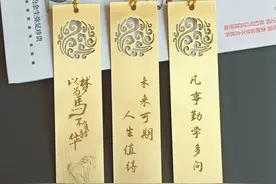 以梦为馬
不负韶华
未来可期
人生值得
凡事勤学多问